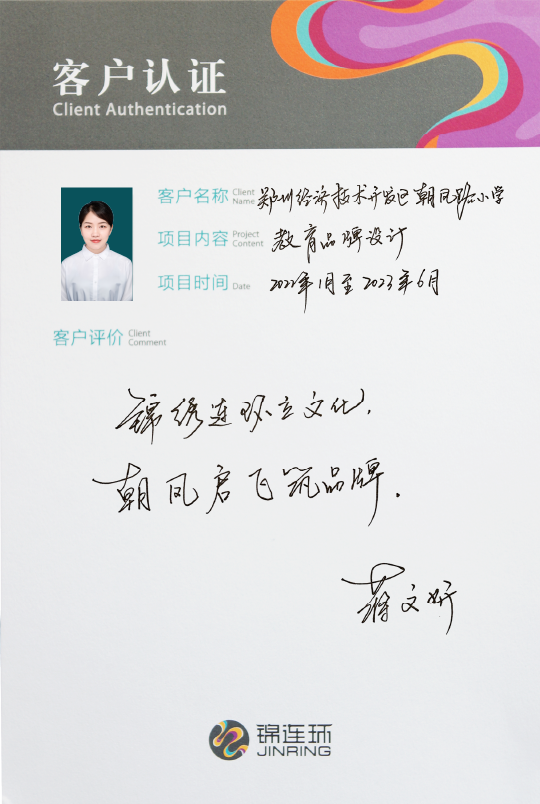 客户认证
Client Authentication
客户名称 Client Name 郑州经济技术开发区朝凤路小学
项目内容 Project Content 教育品牌设计
项目时间 Date 2022年1月至2023年6月
客户评价 Client Comment
锦绣连环立文化,
朝凤启飞筑品牌.
蒋文妍
锦连环
JINRING